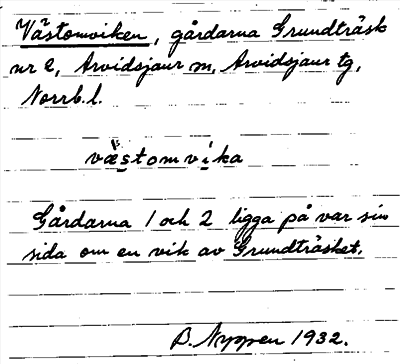 Västomviken, gårdarna Grundträsk
nr 2, Arvidsjaur sn, Arvidsjaur tg,
Norrb. l.
västomvika
Gårdarna 1 och 2 ligga på var sin
sida om en vik av Grundträsket.
B. Nyppen 1932.